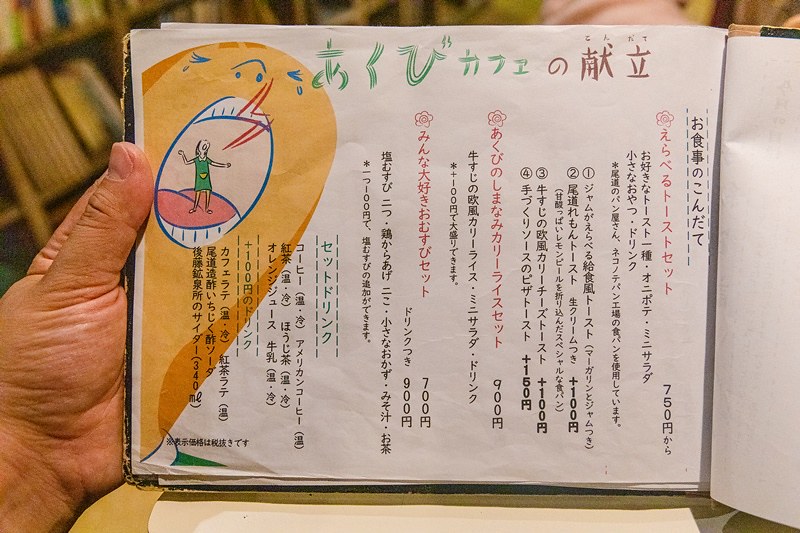 あくびカフェの献立
こんだて
お食事のこんだて
えらべるトーストセット 750円から
お好きなトースト一種・オニポテ・ミニサラダ
小さなおやつ・ドリンク
*尾道のパン屋さん、ネコノテパン工場の食パンを使用しています。
① ジャムがえらべる給食風トースト(マーガリンとジャムつき)
② 尾道れもんトースト 生クリームつき +100円
(甘酸っぱいレモンピールを折り込んだスペシャルな食パン)
③ 牛すじの欧風カリーチーズトースト +100円
④ 手づくりソースのピザトースト +150円
あくびのしまなみカリーライスセット 900円
牛すじの欧風カリーライス・ミニサラダ・ドリンク
*+100円で大盛りできます。
みんな大好きおむすびセット 700円
ドリンクつき 900円
塩むすび 二つ・鶏からあげ 二こ・小さなおかず・みそ汁・お茶
*一つ100円で、塩むすびの追加ができます。
セットドリンク
コーヒー(温・冷) アメリカンコーヒー(温)
紅茶(温・冷) ほうじ茶(温・冷)
オレンジジュース 牛乳(温・冷)
+100円のドリンク
カフェラテ(温・冷) 紅茶ラテ(温)
尾道造酢いちじく酢ソーダ
後藤鉱泉所のサイダー(340ml)
※表示価格は税抜きです